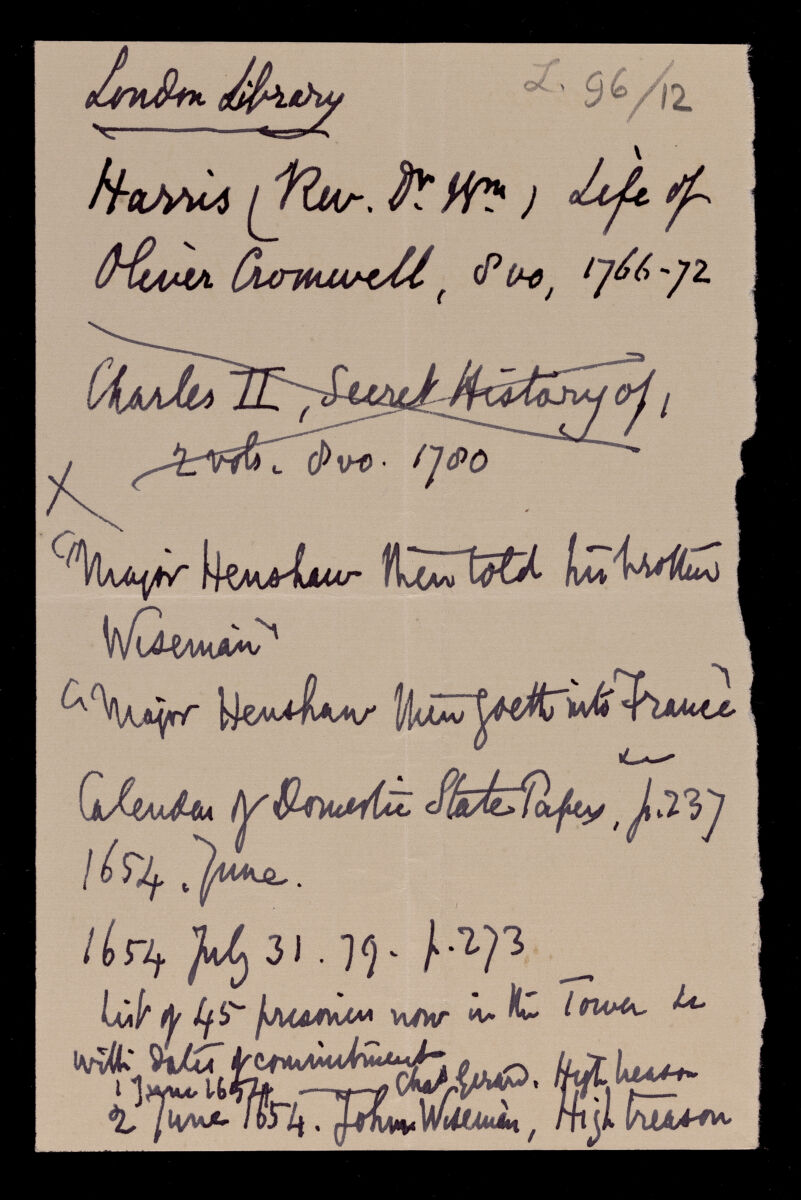 London Library
L. 96/12
Harris (Rev. Dr. Wm) Life of
Oliver Cromwell, 8vo, 1766-72
Charles II, Secret History of,
2 vols. 8vo. 1780
X
"Major Henshaw then told his brother
Wiseman"
"Major Henshaw then goeth into France"
&c
Calendar of Domestic State Papers, p. 237
1654. June.
1654 July 31. 79. p. 273
List of 45 prisoners now in the Tower &c
with dates of commitment
1 June 1654 — Chas Gerard. High treason
2 June 1654. John Wiseman, High treason